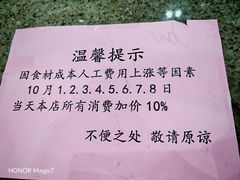 温馨提示
因食材成本人工费用上涨等因素
10月1.2.3.4.5.6.7.8日
当天本店所有消费加价10%
不便之处 敬请原谅
HONOR Magic7